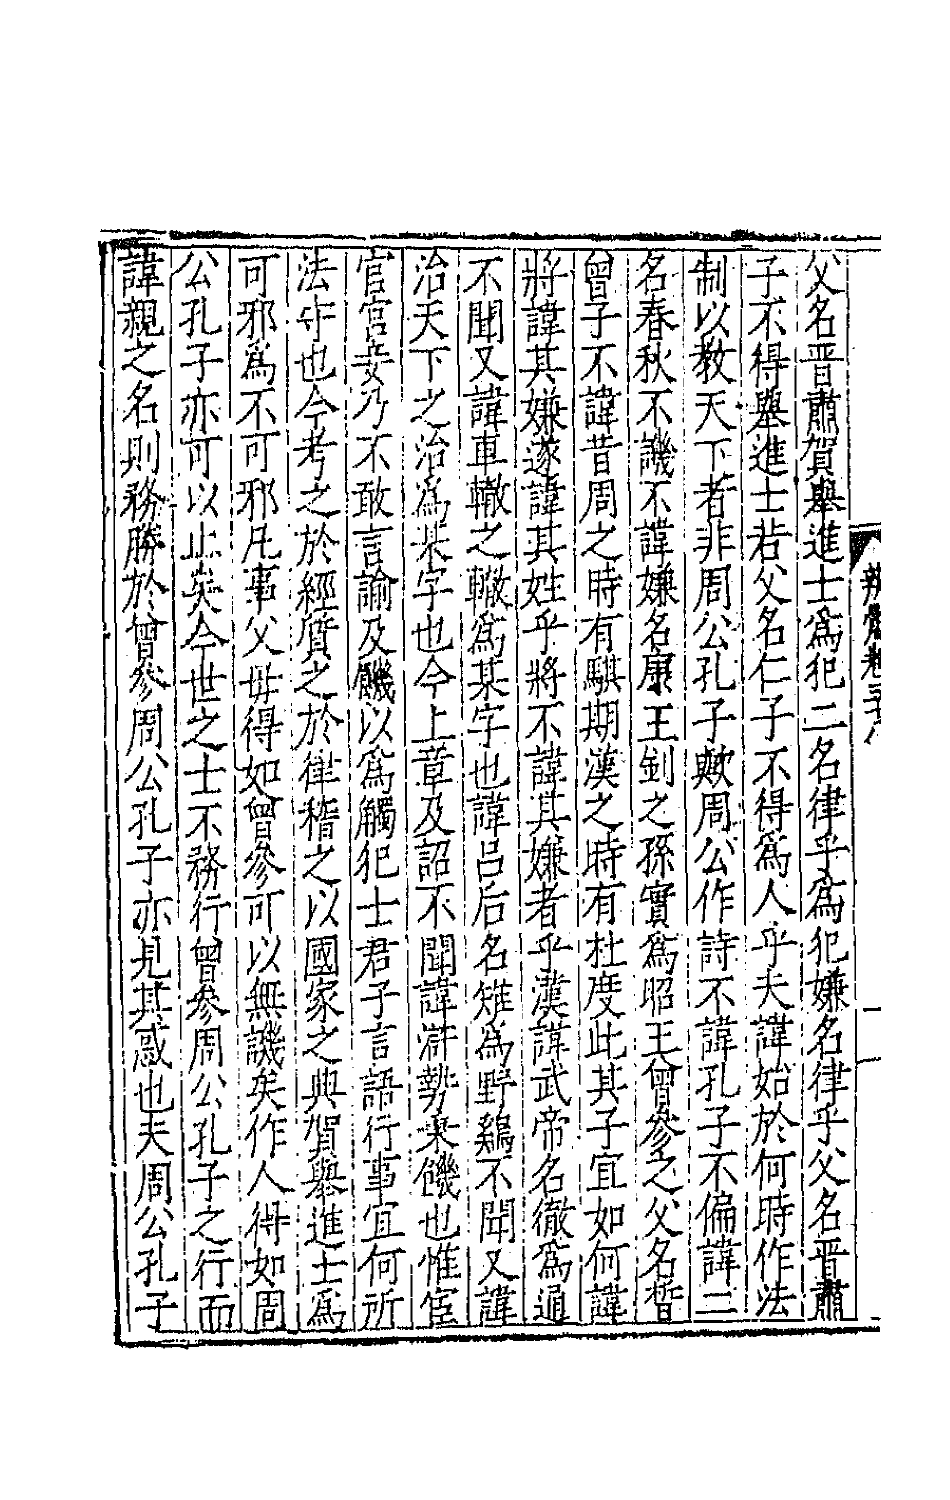 父名晋肅賀舉進士爲犯二名律乎爲犯嫌名律乎父名晋肅
子不得舉進士若父名仁子不得爲人乎夫諱始於何時作法
制以教天下者非周公孔子歟周公作詩不諱孔子不偏諱二
名春秋不譏不諱嫌名康王釗之孫實爲昭王曾參之父名晳
曾子不諱昔周之時有騏期漢之時有杜度此其子宜如何諱
將諱其嫌遂諱其姓乎將不諱其嫌者乎漢諱武帝名徹爲通
不聞又諱車轍之轍爲某字也諱呂后名雉爲野鷄不聞又諱
治天下之治爲某字也今上章及詔不聞諱滸勢秉饑也惟宦
官宮妾乃不敢言諭及饑以爲觸犯士君子言語行事宜何所
法守也今考之於經質之於律稽之以國家之典賀舉進士爲
可邪爲不可邪凡事父母得如曾參可以無譏矣作人得如周
公孔子亦可以止矣今世之士不務行曾參周公孔子之行而
諱親之名則務勝於曾參周公孔子亦見其惑也夫周公孔子